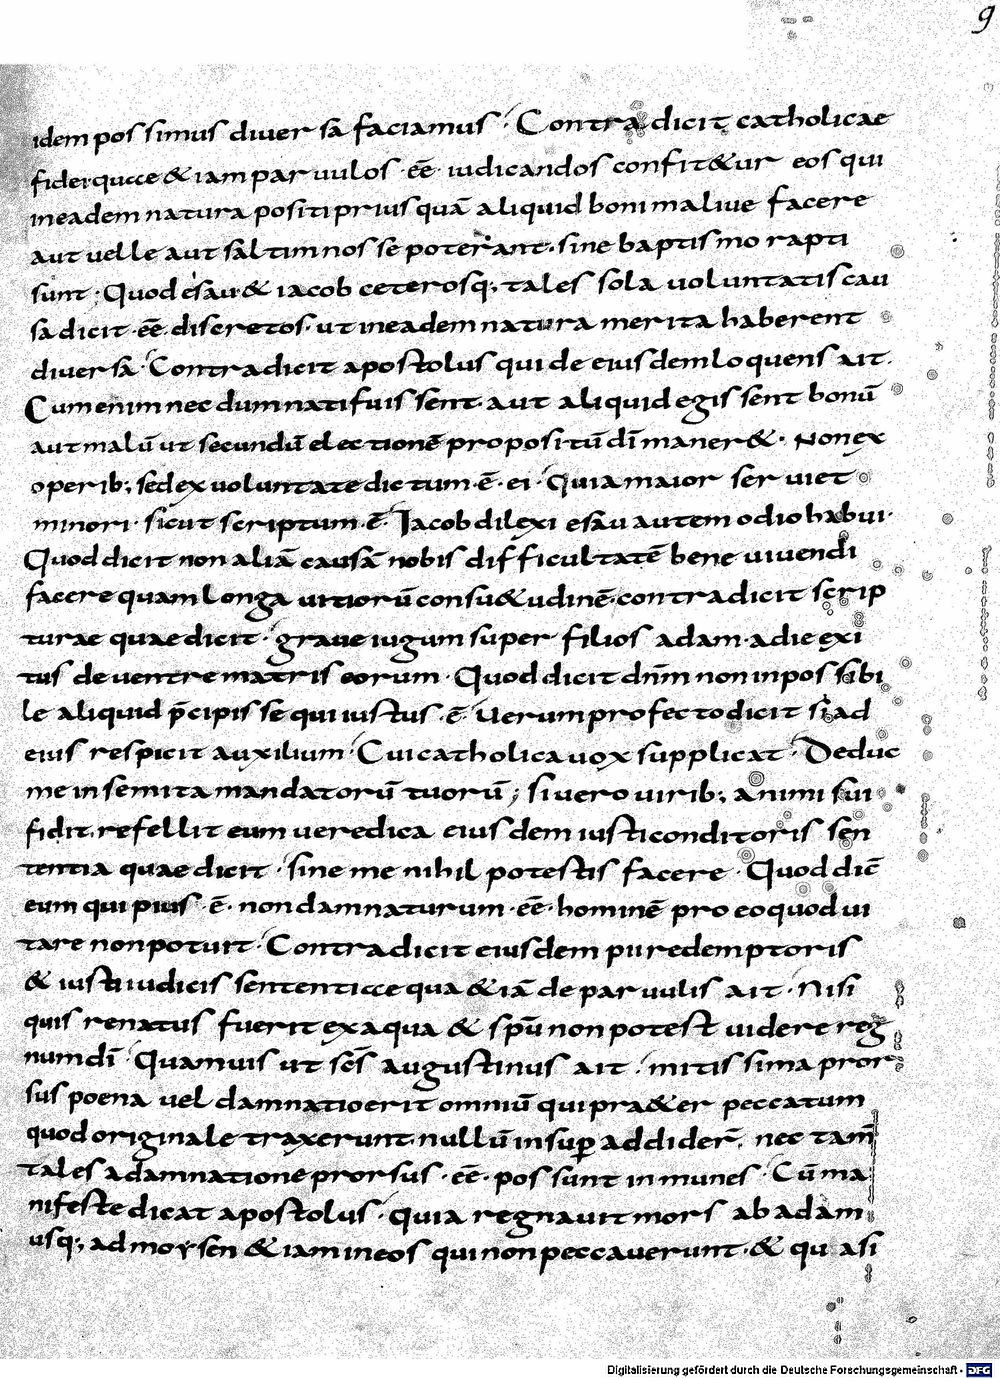 9
idem possimus diuersa faciamus· Contradicit catholicae
fidei quae & iam paruulos ·ee· iudicandos confit&ur eos qui
in eadem natura positi prius quā aliquid boni maliue facere
aut uelle aut saltim nosse poterant· sine baptismo rapti
sunt; Quod esau & iacob ceterosq; tales sola uoluntatis cau
sa dicit ·ēē· discretos· ut in eadem natura merita haberent
diuersa· Contradicit apostolus qui de eiusdem loquens ait·
Cum enim nec dum nati fuissent· aut aliquid egissent bonū
aut malū ut secundū electionē propositū dī maner&· Non ex
operib; sed ex uoluntate dictum ·ē· ei· Quia maior seruiet
minori· sicut scriptum ·ē· Iacob dilexi esau autem odio habui·
Quod dicit non aliā causā nobis difficultatē bene uiuendi
facere quam longa uitiorū consu&udinē· contradicit scrip
turae quae dicit· graue iugum super filios adam· a die exi
tus de uentre matris eorum· Quod dicit dn̄m non inpossibi
le aliquid p̄cipisse qui iustus ·ē· Uerum profecto dicit si ad
eius respicit auxilium· Cui catholica uox supplicat· Deduc
me in semita mandatorū tuorū; si uero uirib; animi sui
fidit· refellit eum ueredica eiusdem iusti conditoris sen
tentia quae dicit· sine me nihil potestis facere· Quod dic̄
eum qui pius ·ē· non damnaturum ·ēē· hominē pro eo quod ui
tare non potuit· Contradicit eiusdem pii redemptoris
& iusti iudicis sententiae qua & iā de paruulis ait· Nisi
quis renatus fuerit ex aqua & spū non potest uidere reg
num dī· Quamuis ut scs̄ augustinus ait· mitissima pror
sus poena uel damnatio erit omniū qui pra&er peccatum
quod originale traxerunt· nullū insup̄ addider̄· nec tam̄
tales a damnatione prorsus ·ēē· possunt inmunes· Cū ma
nifeste dicat apostolus· quia regnauit mors ab adam
usq; ad moysen & iam in eos qui non peccauerunt· & quasi
Digitalisierung gefördert durch die Deutsche Forschungsgemeinschaft - DFG